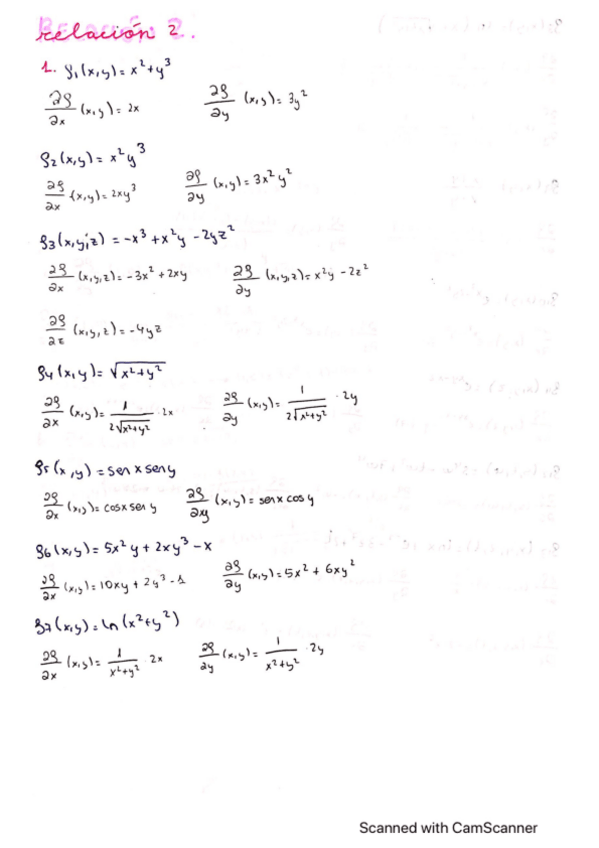 relación 2.
1. f₁(x,y) = x² + y³
∂f/∂x (x,y) = 2x    ∂f/∂y (x,y) = 3y²
f₂(x,y) = x² y³
∂f/∂x (x,y) = 2xy³    ∂f/∂y (x,y) = 3x² y²
f₃(x,y,z) = -x³ + x²y - 2yz²
∂f/∂x (x,y,z) = -3x² + 2xy    ∂f/∂y (x,y,z) = x²y - 2z²
∂f/∂z (x,y,z) = -4yz
f₄(x,y) = √(x²+y²)
∂f/∂x (x,y) = 1/(2√(x²+y²)) · 2x    ∂f/∂y (x,y) = 1/(2√(x²+y²)) · 2y
f₅(x,y) = sen x sen y
∂f/∂x (x,y) = cosx sen y    ∂f/∂xy (x,y) = senx cos y
f₆(x,y) = 5x² y + 2xy³ - x
∂f/∂x (x,y) = 10xy + 2y³ - 1    ∂f/∂y (x,y) = 5x² + 6xy²
f₇(x,y) = ln (x² + y²)
∂f/∂x (x,y) = 1/(x²+y²) · 2x    ∂f/∂y (x,y) = 1/(x²+y²) · 2y
Scanned with CamScanner